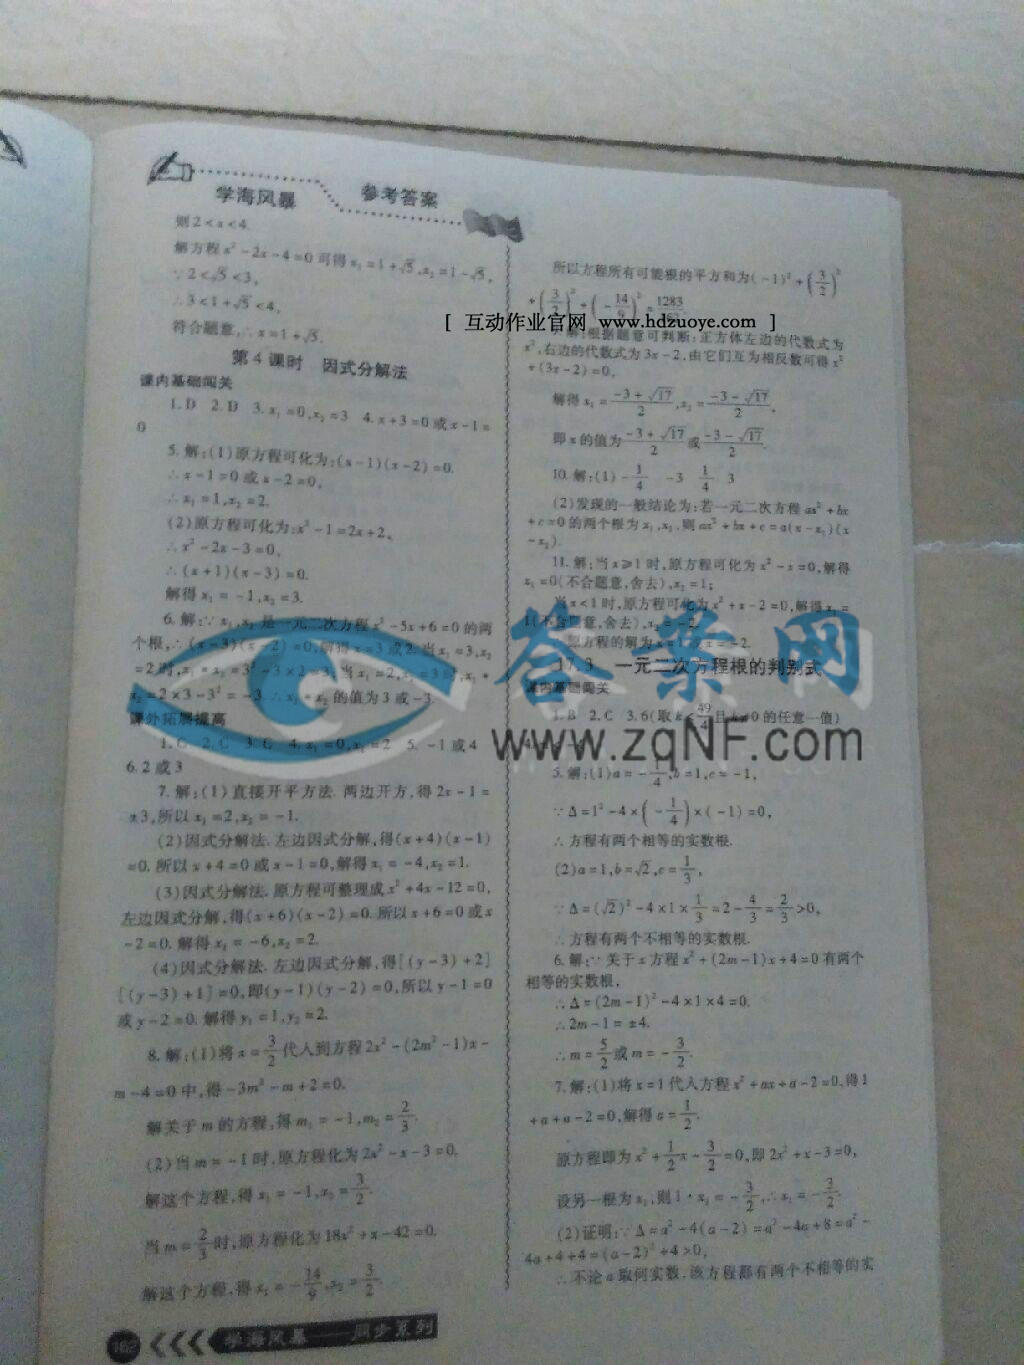 学海风暴
参考答案
则2<x<4.
解方程x²-2x-4=0可得x₁=1+√5,x₂=1-√5,
∵2<√5<3,
∴3<1+√5<4,
符合题意,∴x=1+√5.
第4课时 因式分解法
课内基础闯关
1.D 2.D 3.x₁=0,x₂=3 4.x+3=0或x-1=
0
5.解:(1)原方程可化为:(x-1)(x-2)=0.
∴x-1=0或x-2=0,
∴x₁=1,x₂=2.
(2)原方程可化为:x²-1=2x+2,
∴x²-2x-3=0,
∴(x+1)(x-3)=0.
解得x₁=-1,x₂=3.
6.解:∵x₁,x₂是一元二次方程x²-5x+6=0的两
个根,∴(x-3)(x-2)=0,解得x=3或2.当x₁=3,x₂
=2时,x₁*x₂=3²-3×2=3;当x₁=2,x₂=3时,x₁*
x₂=2×3-3²=-3.∴x₁*x₂的值为3或-3.
课外拓展提高
1.C 2.C 3.C 4.x₁=0,x₂=2 5.-1或4
6.2或3
7.解:(1)直接开平方法.两边开方,得2x-1=
±3,所以x₁=2,x₂=-1.
(2)因式分解法.左边因式分解,得(x+4)(x-1)
=0.所以x+4=0或x-1=0,解得x₁=-4,x₂=1.
(3)因式分解法.原方程可整理成x²+4x-12=0,
左边因式分解,得(x+6)(x-2)=0.所以x+6=0或x
-2=0.解得x₁=-6,x₂=2.
(4)因式分解法.左边因式分解,得[(y-3)+2]
[(y-3)+1]=0,即(y-1)(y-2)=0,所以y-1=0
或y-2=0.解得y₁=1,y₂=2.
8.解:(1)将x=3/2代入到方程2x²-(2m²-1)x-
m-4=0中,得-3m²-m+2=0.
解关于m的方程,得m₁=-1,m₂=2/3.
(2)当m=-1时,原方程化为2x²-x-3=0.
解这个方程,得x₁=-1,x₂=3/2.
当m=2/3时,原方程化为18x²+x-42=0.
解这个方程,得x₁=-14/9,x₂=3/2.
162
学海风暴——同步系列
所以方程所有可能根的平方和为(-1)²+(3/2)²
+(3/2)²+(-14/9)²=1283/162
[ 互动作业官网 www.hdzuoye.com ]
解:根据题意可判断:正方体左边的代数式为
x²,右边的代数式为3x-2.由它们互为相反数可得x²
+(3x-2)=0,
解得x₁=(-3+√17)/2,x₂=(-3-√17)/2,
即x的值为(-3+√17)/2或(-3-√17)/2.
10.解:(1)-1/4 -3 1/4 3
(2)发现的一般结论为:若一元二次方程ax²+bx
+c=0的两个根为x₁,x₂,则ax²+bx+c=a(x-x₁)(x
-x₂).
11.解:当x≥1时,原方程可化为x²-x=0,解得
x₁=0(不合题意,舍去),x₂=1;
当x<1时,原方程可化为x²+x-2=0,解得x₁=
1(不合题意,舍去),x₂=-2.
原方程的解为x=1或x=-2.
17.3 一元二次方程根的判别式
课内基础闯关
1.B 2.C 3.6(取k<49/4且k≠0的任意一值)
答案网
www.zqNF.com
5.解:(1)a=-1/4,b=1,c=-1,
∵Δ=1²-4×(-1/4)×(-1)=0,
∴方程有两个相等的实数根.
(2)a=1,b=√2,c=1/3,
∵Δ=(√2)²-4×1×1/3=2-4/3=2/3>0,
∴方程有两个不相等的实数根.
6.解:∵关于x方程x²+(2m-1)x+4=0有两个
相等的实数根,
∴Δ=(2m-1)²-4×1×4=0.
∴2m-1=±4.
∴m=5/2或m=-3/2.
7.解:(1)将x=1代入方程x²+ax+a-2=0,得1
+a+a-2=0,解得a=1/2.
原方程即为x²+1/2x-3/2=0,即2x²+x-3=0,
设另一根为x₁,则1·x₁=-3/2,∴x₁=-3/2.
(2)证明:∵Δ=a²-4(a-2)=a²-4a+8=a²-
4a+4+4=(a-2)²+4>0,
∴不论a取何实数,该方程都有两个不相等的实